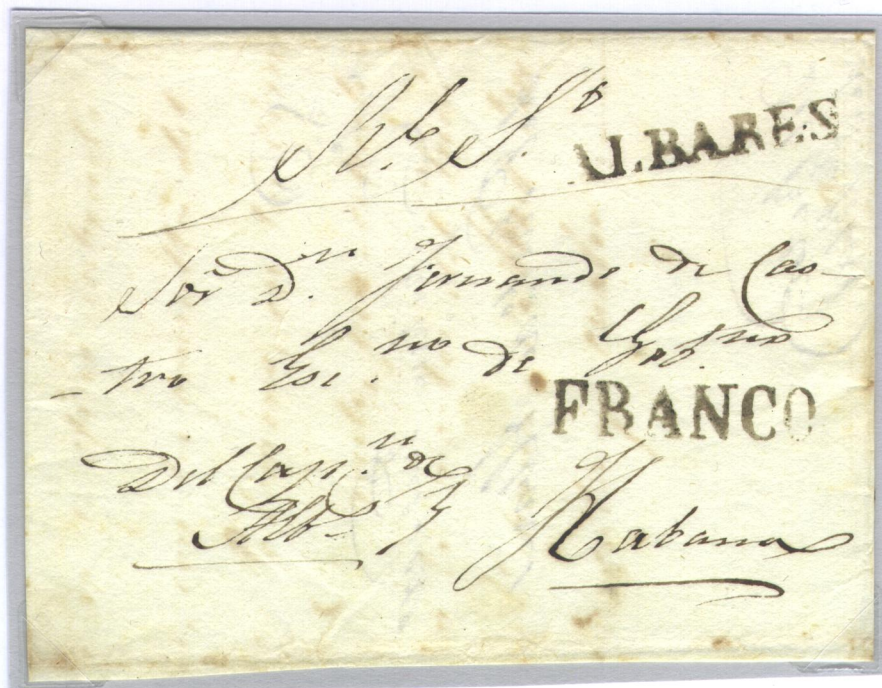 Rl. S.º
ALBARES
Sor Dn. Fernando de Cas-
tro Esc.no de Gob.no
FRANCO
Del Cap.n de
Habana